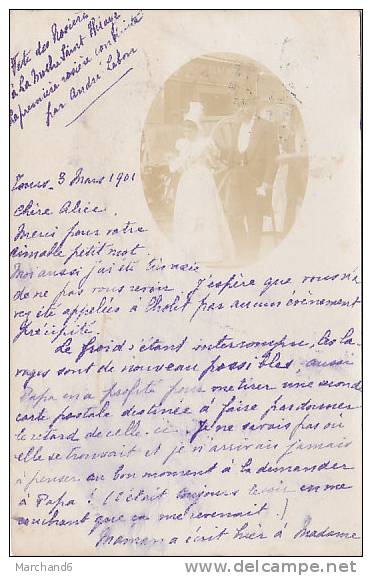 Fête des Rosières
à La Mothe Saint Héraye
La première rosière conduite
par André Lebon
Tours 3 Mars 1901
Chère Alice,
Merci pour votre
aimable petit mot.
Moi aussi j'ai été
de ne pas vous revoir. J'espère que vous n'a
vez été appelées à par aucun évènement
précipité.
Le froid s'étant interrompu, les la-
vages sont de nouveau possibles, aussi
Papa en a profité pour me tirer une seconde
carte postale destinée à faire pardonner
le retard de celle-ci. Je ne savais pas où
elle se trouvait et je n'arrivais jamais
à penser au bon moment à la demander
à Papa! (C'était toujours le soir en me
couchant que ça me revenait!)
Maman a écrit hier à Madame
Marchand6
www.delcampe.net